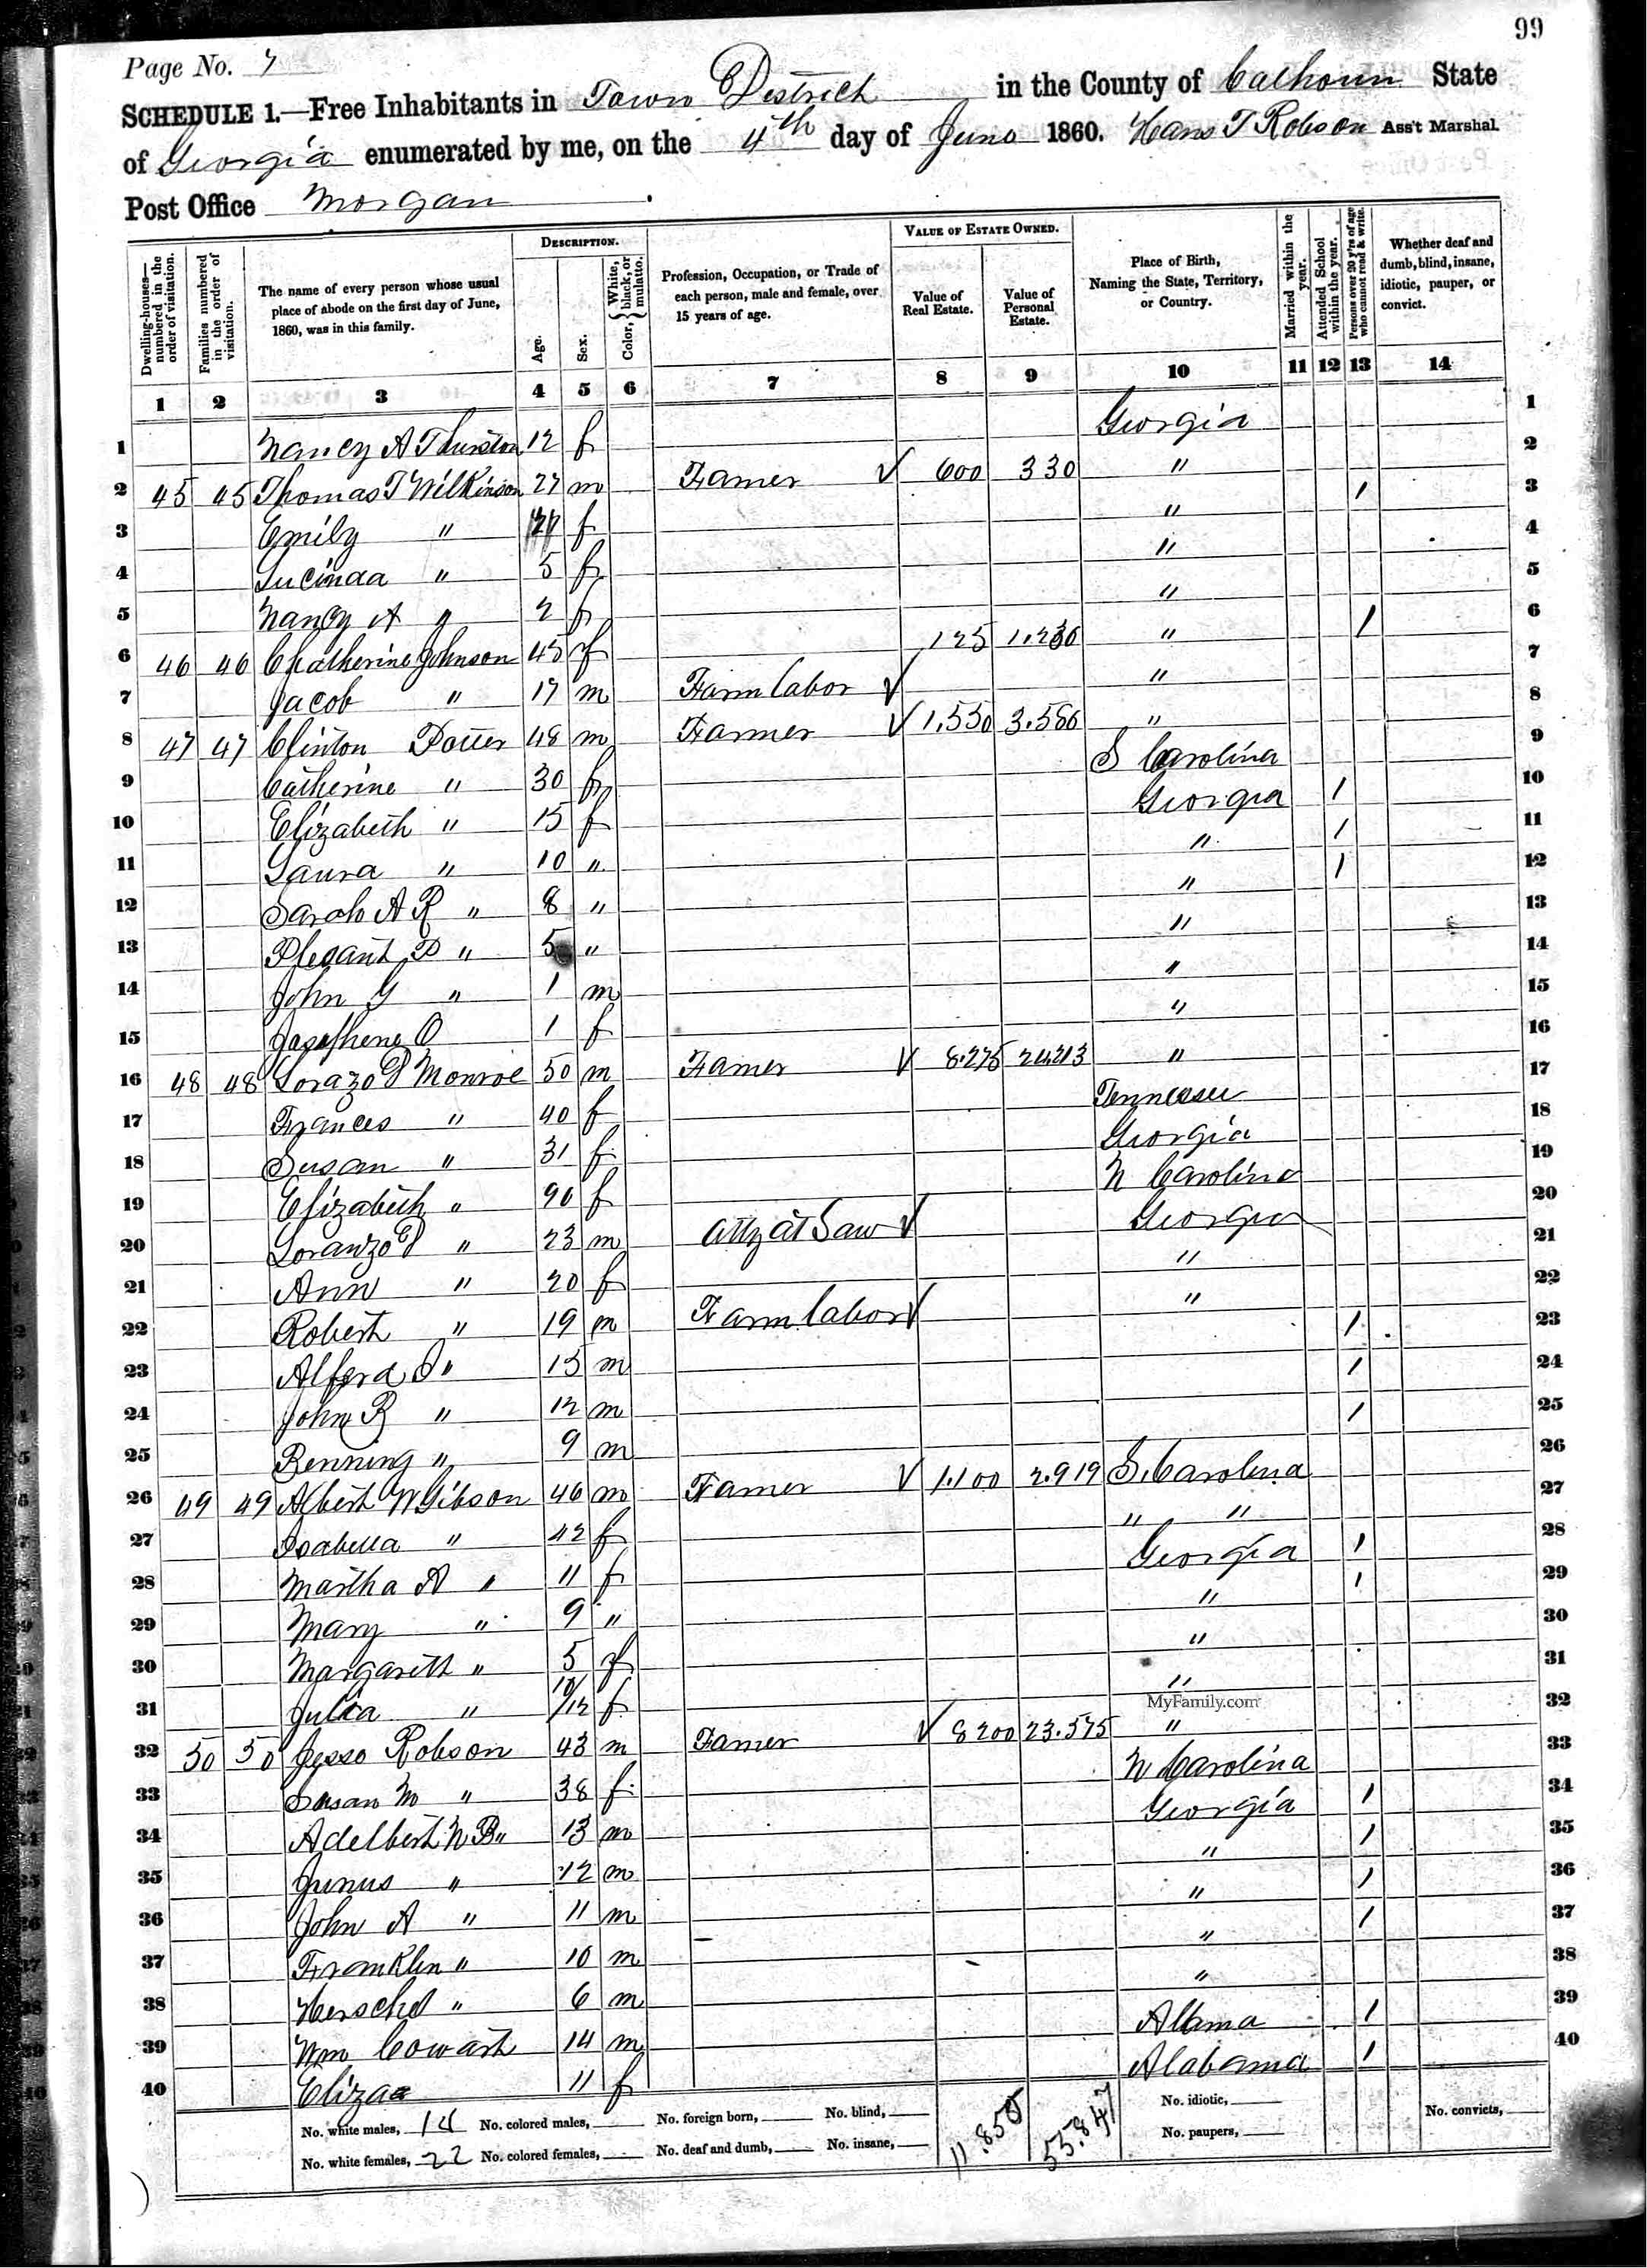 99
Page No. 7
SCHEDULE 1.—Free Inhabitants in Town District in the County of Calhoun State
of Georgia enumerated by me, on the 4th day of June 1860. Hans T Robson Ass't Marshal.
Post Office Morgan
Dwelling-houses—numbered in the order of visitation.
Families numbered in the order of visitation.
The name of every person whose usual place of abode on the first day of June, 1860, was in this family.
DESCRIPTION.
Age.
Sex.
Color, { White, black, or mulatto.
Profession, Occupation, or Trade of each person, male and female, over 15 years of age.
VALUE OF ESTATE OWNED.
Value of Real Estate.
Value of Personal Estate.
Place of Birth, Naming the State, Territory, or Country.
Married within the year.
Attended School within the year.
Persons over 20 y'rs of age who cannot read & write.
Whether deaf and dumb, blind, insane, idiotic, pauper, or convict.
1 2 3 4 5 6 7 8 9 10 11 12 13 14
1 Nancy A Thurston 12 f Georgia 1
2 45 45 Thomas T Wilkinson 27 m Famer √ 600 330 " 2
3 Emily " f " / 3
4 Lucinda " 5 f " 4
5 Nancy A " 2 f " 5
6 46 46 Chatherine Johnson 45 f 125 " / 6
7 Jacob " 17 m Farm labor √ " 7
8 47 47 Clinton Potter 48 m Farmer √ 1.550 3.586 " 8
9 Catherine " 30 f S Carolina 9
10 Elizabeth " 15 f Georgia / 10
11 Laura " 10 " " / 11
12 Sarah A R " 8 " " / 12
13 Plesant D " 5 " " 13
14 John G " 1 m " 14
15 Josephene O 1 f " 15
16 48 48 Lorazo D Monroe 50 m Famer √ 8.275 " 16
17 Frances " 40 f Tennessee 17
18 Susan " 31 f Georgia 18
19 Elizabeth " 90 f N Carolina 19
20 Loranzo D " 23 m Atty at Law √ Georgia 20
21 Ann " 20 f " 21
22 Robert " 19 m Farm labor √ " 22
23 Alferd " 15 m / 23
24 John R " 12 m / 24
25 Benning " 9 m / 25
26 49 49 Albert W Gibson 46 m Famer √ 1.100 2.919 S. Carolina 26
27 Isabella " 42 f " " 27
28 Martha A " 11 f Georgia / 28
29 Mary " 9 " " / 29
30 Margarett " 5 f " 30
31 Julia " 10/12 f " 31
MyFamily.com
32 50 50 Jesso Robson 43 m Famer √ 8200 23.575 " 32
33 Susan M " 38 f N Carolina 33
34 Adelbert W B " 13 m Georgia / 34
35 Junus " 12 m " / 35
36 John A " 11 m " / 36
37 Franklin " 10 m " / 37
38 Herschel " 6 m " 38
39 Wm Cowart 14 m Albama / 39
40 Eliza 11 f Alabama / 40
No. white males, 14 No. colored males, No. foreign born, No. blind, 11.850 55.847 No. idiotic, No. convicts,
No. white females, 22 No. colored females, No. deaf and dumb, No. insane, No. paupers,